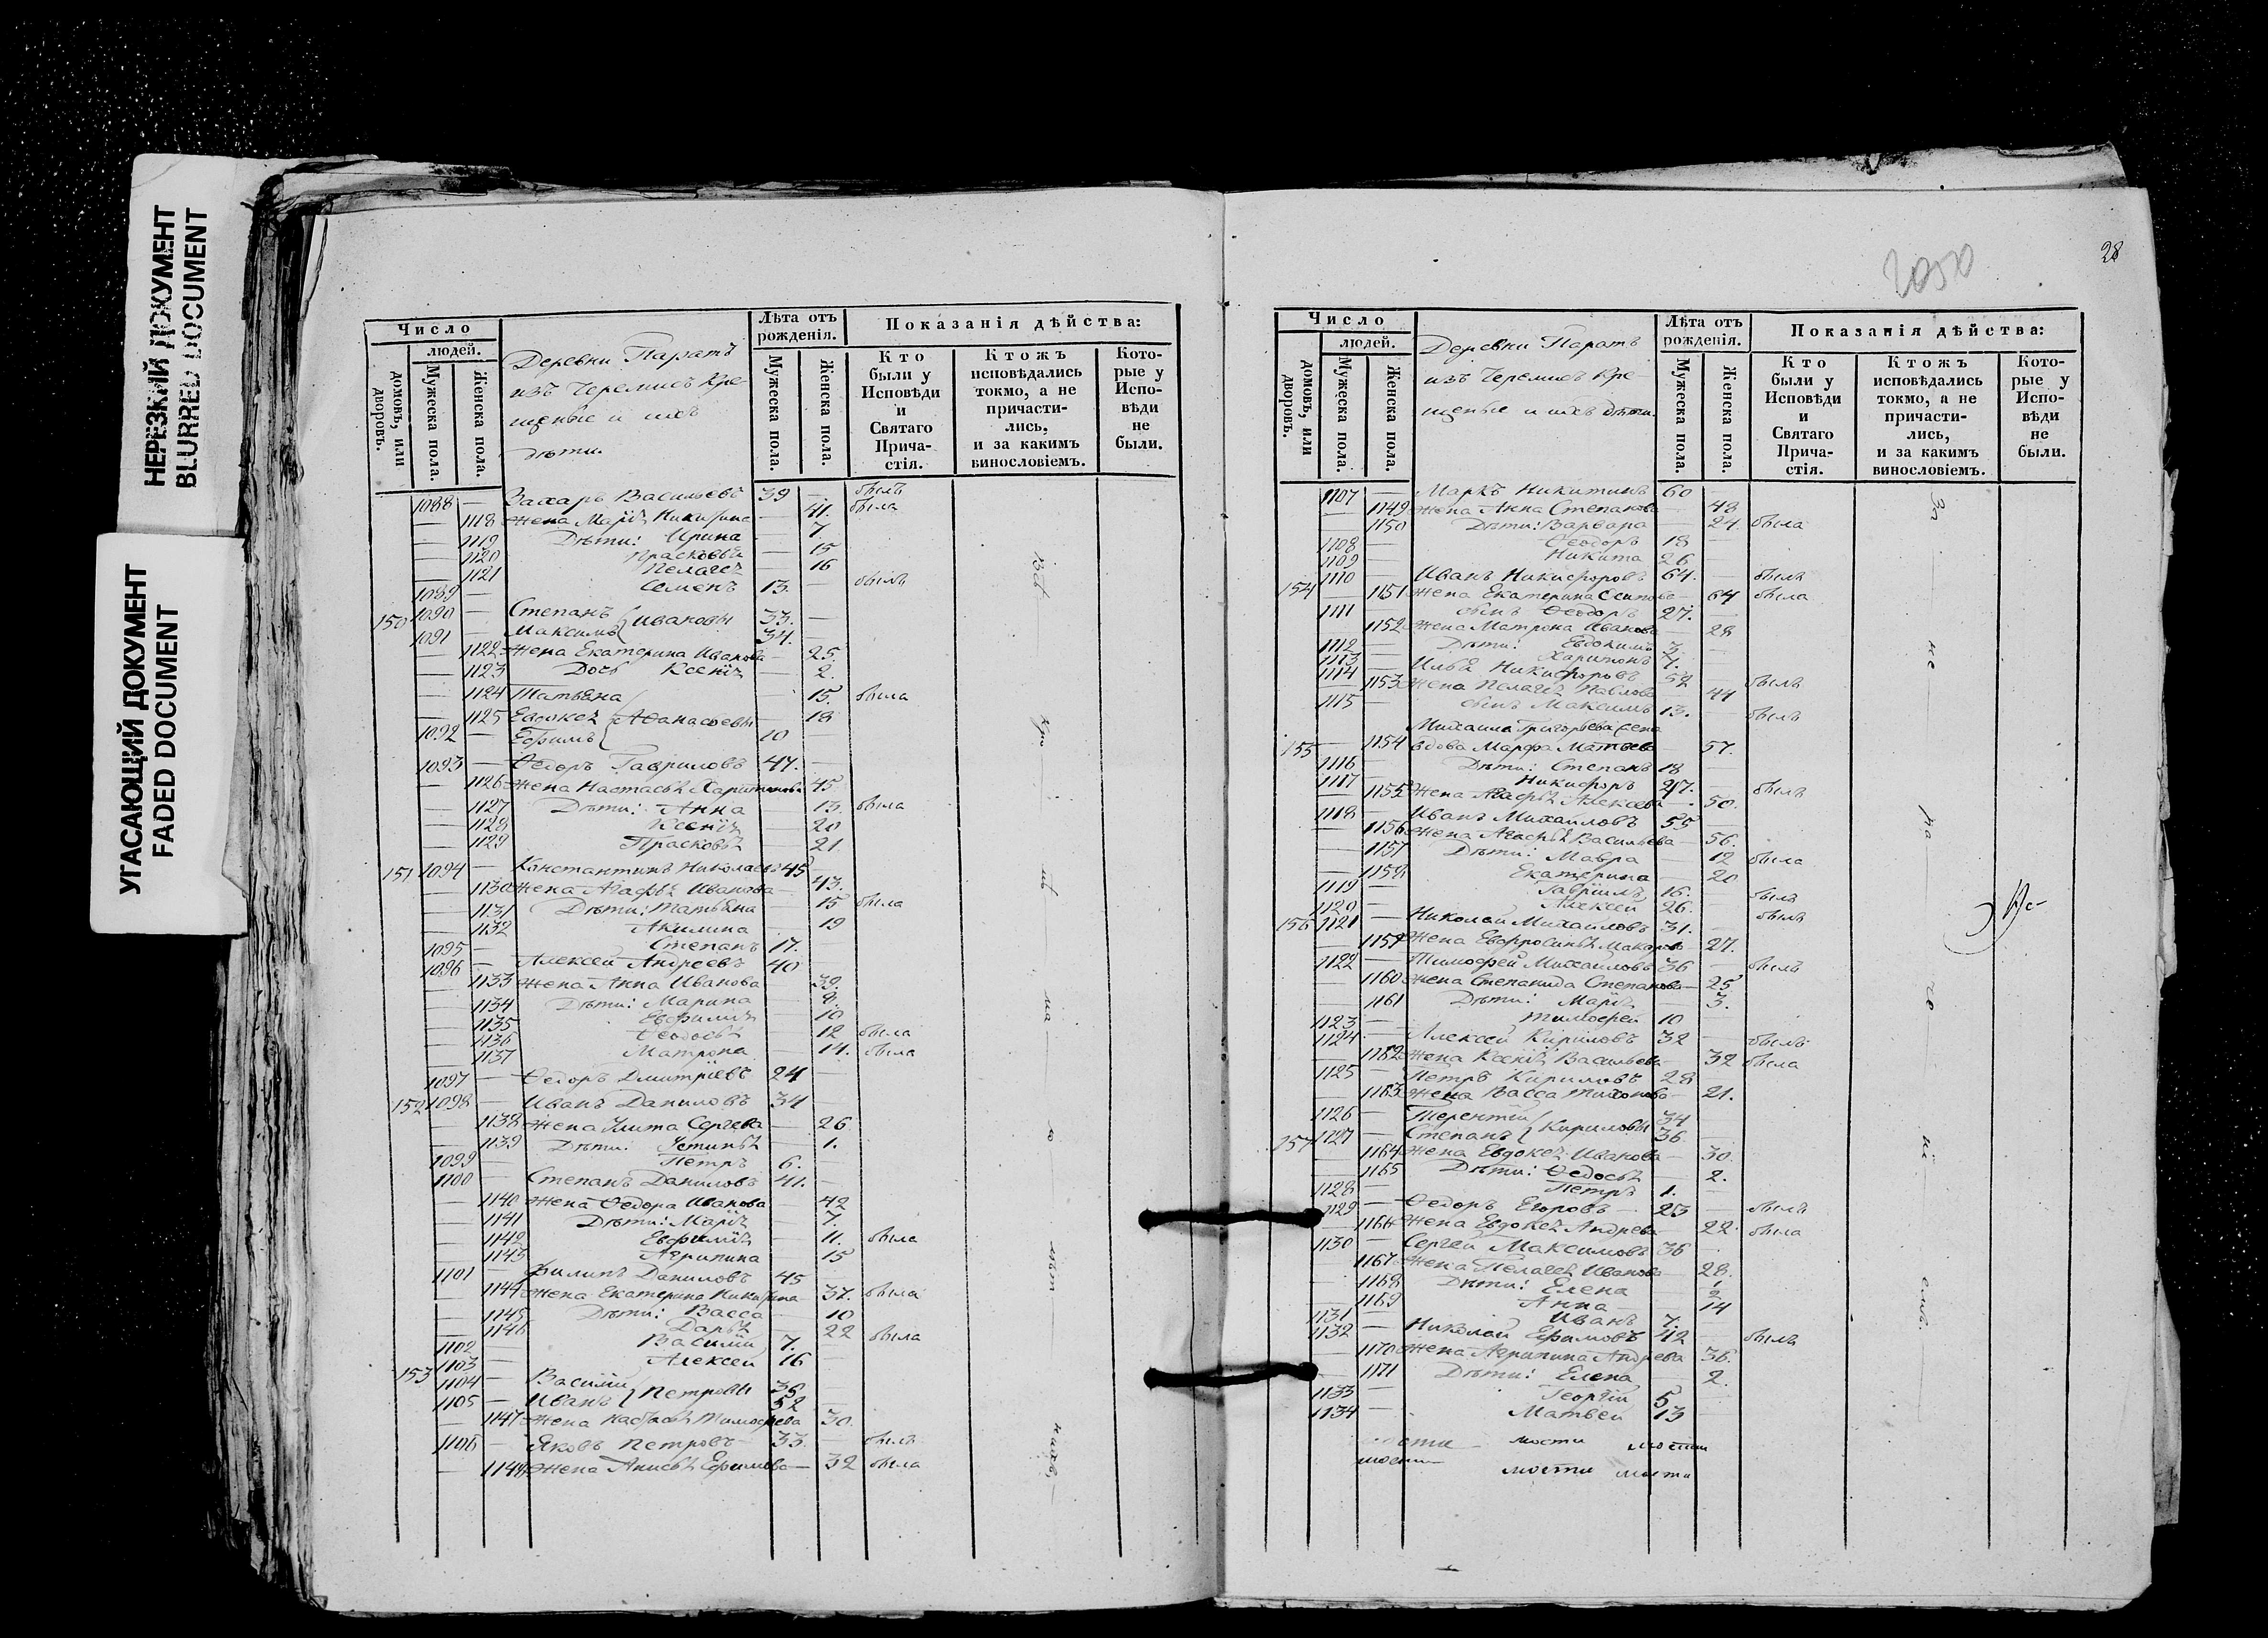 НЕРЕЗКИЙ ДОКУМЕНТ
BLURRED DOCUMENT
УГАСАЮЩИЙ ДОКУМЕНТ
FADED DOCUMENT
Число
людей.
домовъ, или дворовъ.
Мужеска пола.
Женска пола.
Деревни Паратъ
изъ Черемисъ Кре-
щеные и ихъ
дѣти.
Лѣта отъ рожденія.
Мужеска пола.
Женска пола.
Показанія дѣйства:
Кто были у Исповѣди и Святаго Прича-стія.
Ктожъ исповѣдались токмо, а не причасти-лись, и за какимъ винословіемъ.
Кото-рые у Испо-вѣди не были.
1088 — Захаръ Васильевъ 39 — былъ
— 1118 Жена Марія Никитина — 41. была
— 1119 Дѣти: Ирина — 7.
— 1120 Прасковья — 15
— 1121 Пелагея — 16
1089 — Семенъ 13. былъ
150 1090 — Степанъ } Ивановы 33. —
1091 — Максимъ 34. —
— 1122 Жена Екатерина Иванова — 25.
— 1123 Дочь Ксенія — 2.
— 1124 Татьяна — 15. была
— 1125 Евдокея } Афанасьевы — 18
1092 — Ефимъ 10
1093 — Ѳедоръ Гавриловъ 47. —
— 1126 Жена Настасья Харитонова 45
— 1127 Дѣти: Анна — 13. была
— 1128 Ксенія — 20
— 1129 Прасковья 21.
151 1094 — Константинъ Николаевъ 45
— 1130 Жена Агафья Иванова — 43.
— 1131 Дѣти: Татьяна — 15 была
— 1132 Акилина 19
1095 — Степанъ 17.
1096 — Алексей Андреевъ 40
— 1133 Жена Анна Иванова — 39.
— 1134 Дѣти: Марина — 8.
— 1135 Евфимія — 10
— 1136 Ѳеодосья — 12 была
— 1137 Матрона — 14. была
1097 — Ѳедоръ Дмитріевъ 24 —
152 1098 — Иванъ Даниловъ 34 —
— 1138 Жена Улита Сергева — 26
— 1139 Дѣти: Устинья 1.
1099 — Петръ 6. —
1100 — Степанъ Даниловъ 41. —
— 1140 Жена Ѳедора Иванова — 42
— 1141 Дѣти: Марія — 7.
— 1142 Евфимія — 11. была
— 1143 Агрипина — 15
1101 — Филипъ Даниловъ 45 —
— 1144 Жена Екатерина Никитина — 37. была
— 1145 Дѣти: Васса — 10
— 1146 Дарья — 22 была
1102 — Василій 7. —
1103 — Алексей 16 —
153 1104 — Василій } Петровы 36
1105 — Иванъ 52 —
— 1147 Жена Настасья Тимофеева 30.
1106 — Яковъ Петровъ 33. — былъ
— 1148 Жена Анисья Ефимова — 32 была
28
Число
людей.
домовъ, или дворовъ.
Мужеска пола.
Женска пола.
Деревни Паратъ
изъ Черемисъ Кре-
щеные и ихъ дѣти.
Лѣта отъ рожденія.
Мужеска пола.
Женска пола.
Показанія дѣйства:
Кто были у Исповѣди и Святаго Прича-стія.
Ктожъ исповѣдались токмо, а не причасти-лись, и за какимъ винословіемъ.
Кото-рые у Испо-вѣди не были.
1107 — Маркъ Никитинъ 60 —
— 1149 Жена Анна Степанова — 48
— 1150 Дѣти: Варвара — 24. была
1108 — Ѳеодоръ 18 —
1109 — Никита 26
1110 — Иванъ Никифоровъ 64. — былъ
154 — 1151 Жена Екатерина Осипова — 64 была
1111 сынъ Ѳеодоръ 27. —
1152 Жена Матрона Иванова — 28
1112 — Дѣти: Евдокимъ 3. —
1113 — Харитонъ 7. —
1114 — Илья Никифоровъ 52 — былъ
— 1153 Жена Пелагея Павлова 44
1115 — сынъ Максимъ 13. — былъ
Михаила Григорьева
155 — 1154 вдова Марфа Матвеева — 57.
1116 — Дѣти: Степанъ 18 —
1117 — Никифоръ 27. — былъ
— 1155 Жена Агафья Алексева — 50.
1118 — Иванъ Михаиловъ 55 —
— 1156 Жена Агафья Васильева — 56.
— 1157 Дѣти: Мавра — 12 была
— 1158 Екатерина — 20
1119 — Гавріилъ 16. — былъ
1120 — Алексей 26. —
156 1121 — Николай Михаиловъ 31. — былъ
— 1159 Жена Евфросинья Макарова 27.
1122 — Тимофей Михаиловъ 36 — былъ
— 1160 Жена Степанида Степанова — 25
— 1161 Дѣти: Марія — 3.
1123 — Тимофей 10 —
1124 — Алексей Кириловъ 32 — былъ
— 1162 Жена Ксенія Васильева — 32 была
1125 — Петръ Кириловъ 28
— 1163 Жена Васса Тихонова — 21.
1126 — Терентій } Кириловы 34
157 1127 — Степанъ 36. —
— 1164 Жена Евдокея Иванова — 30.
— 1165 Дѣти: Ѳедосья — 2.
1128 — Петръ 1. —
1129 — Ѳедоръ Егоровъ — 23 — былъ
— 1166 Жена Евдокея Андрева — 22. была
1130 — Сергей Максимовъ 36 —
— 1167 Жена Пелагея Иванова — 28.
— 1168 Дѣти: Елена —
— 1169 Анна — 14
1131 — Иванъ 7.
1132 — Николай Ефимовъ 42 — былъ
— 1170 Жена Агрипина Андрева 36.
— 1171 Дѣти: Елена — 2.
1133 — Георгій 5
1134 — Матвей 13
мости
мости мости